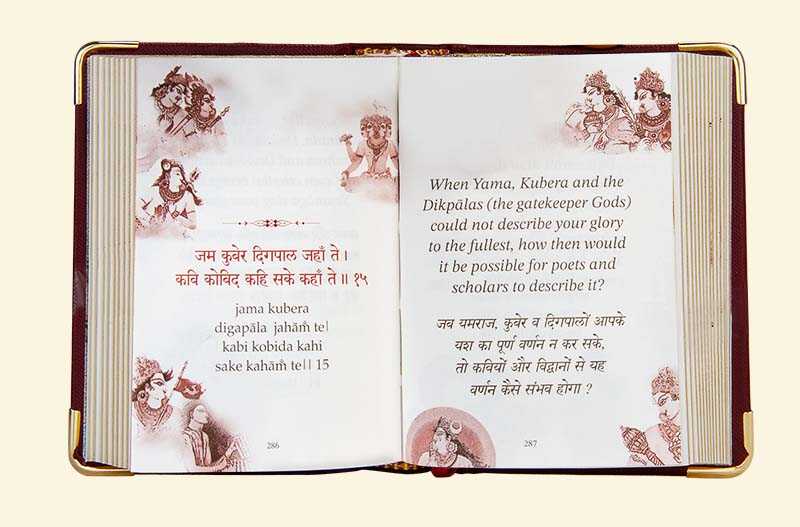 जम कुबेर दिगपाल जहाँ ते।
कवि कोविद कहि सके कहाँ ते॥ १५
jama kubera
digapāla jahām̐ te|
kabi kobida kahi
sake kahām̐ te|| 15
286
When Yama, Kubera and the
Dikpālas (the gatekeeper Gods)
could not describe your glory
to the fullest, how then would
it be possible for poets and
scholars to describe it?
जब यमराज, कुबेर व दिगपालों आपके
यश का पूर्ण वर्णन न कर सके,
तो कवियों और विद्वानों से यह
वर्णन कैसे संभव होगा ?
287